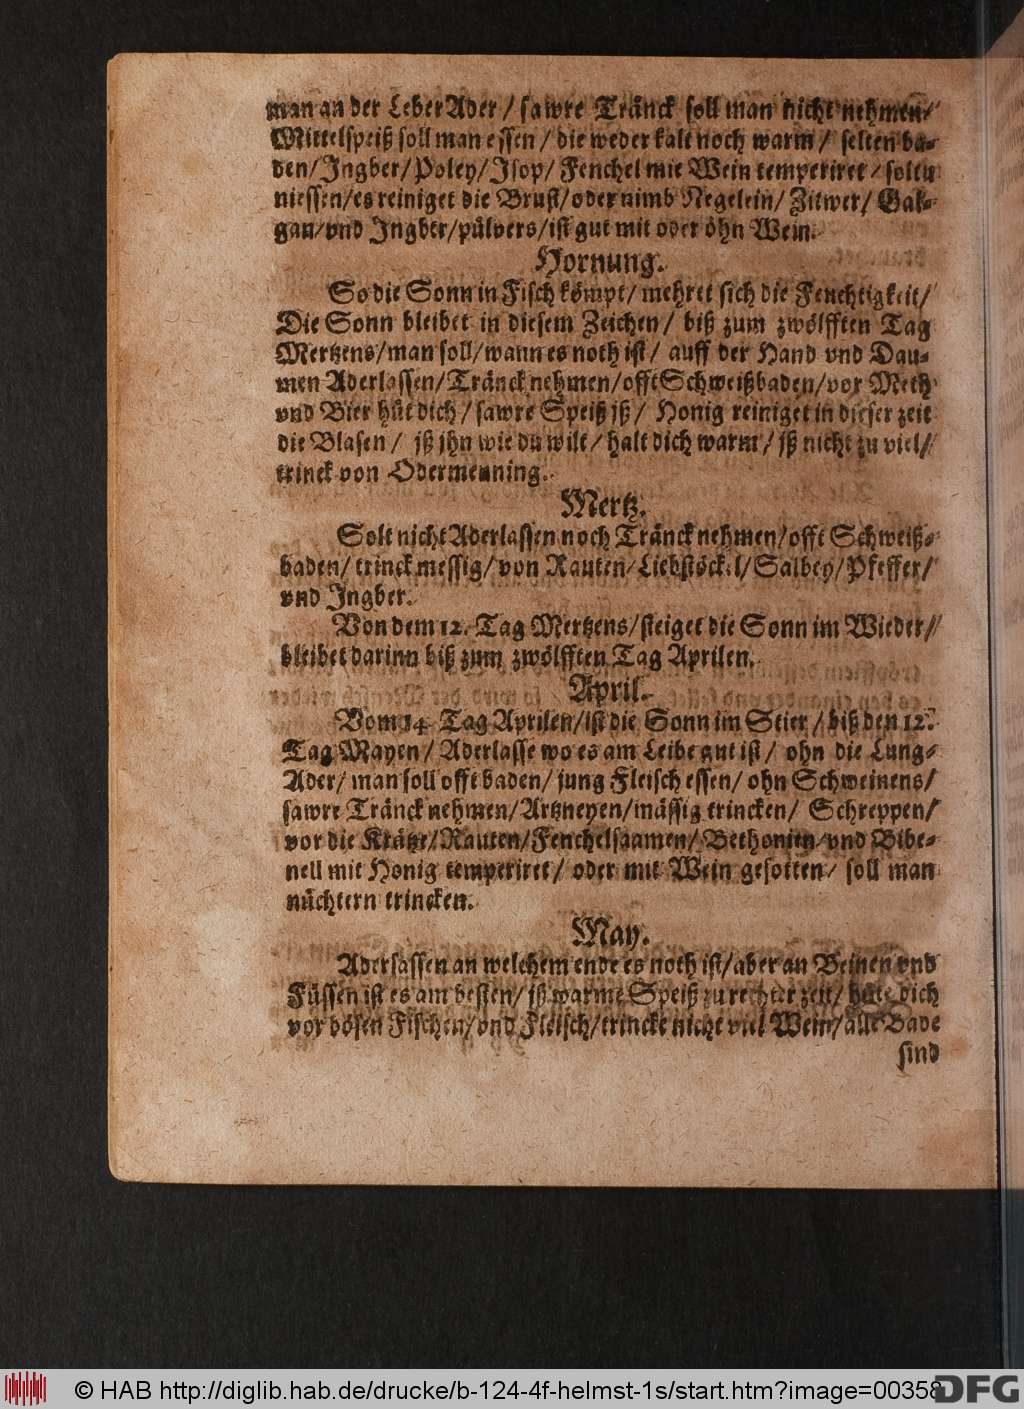 man an der Leber Ader / sawre Tränck soll man nicht nehmen/
Mittelspeiß soll man essen / die weder kalt noch warm / selten ba-
den/ Jngber/ Poley/ Jsop/ Fenchel mit Wein temperiret / soltu
niessen/ es reiniget die Brust/ oder nimb Negelein/ Zitwer/ Gal-
gan/ vnd Jngber/ pülvers/ ist gut mit oder öhn Wein.
Hornung.
So die Sonn in Fisch kömpt/ mehret sich die Feuchtigkeit/
Die Sonn bleibet in diesem Zeichen/ biß zum zwölfften Tag
Mertzens/ man soll/ wann es noth ist/ auff der Hand vnd Dau-
men Aderlassen/ Tränck nehmen/ offt Schweißbaden/ vor Meth
vnd Bier hüt dich / sawre Speiß jß / Honig reiniget in dieser zeit
die Blasen / jß jhn wie du wilt / halt dich warm / jß nicht zu viel/
trinck von Odermenning.
Mertz.
Solt nicht Aderlassen noch Tränck nehmen/ offt Schweiß-
baden/ trinck messig/ von Rauten/ Liebstöckel/ Salbey/ Pfeffer/
vnd Jngber.
Von dem 12. Tag Mertzens/ steiget die Sonn im Wieder/
bleibet darinn biß zum zwölfften Tag Aprilen.
April.
Vom 14 Tag Aprilen/ ist die Sonn im Stier / biß den 12.
Tag Mayen/ Aderlasse wo es am Leibe gut ist / ohn die Lung-
Ader/ man soll offt baden/ jung Fleisch essen/ ohn Schweinens/
sawre Tränck nehmen/ Artzneyen/ mässig trincken/ Schreppen/
vor die Krätze/ Rauten/ Fenchelsaamen/ Bethonien/ vnd Bibe-
nell mit Honig temperiret/ oder mit Wein gesotten/ soll man
nüchtern trincken.
May.
Aderlassen an welchem ende es noth ist/ aber an Beinen vnd
Füssen ist es am besten/ jß warme Speiß zu rechter zeit/ hüte dich
vor bösen Fischen/ vnd Fleisch/ trincke nicht viel Wein/ alle Bade
sind
© HAB http://diglib.hab.de/drucke/b-124-4f-helmst-1s/start.htm?image=00358
DFG